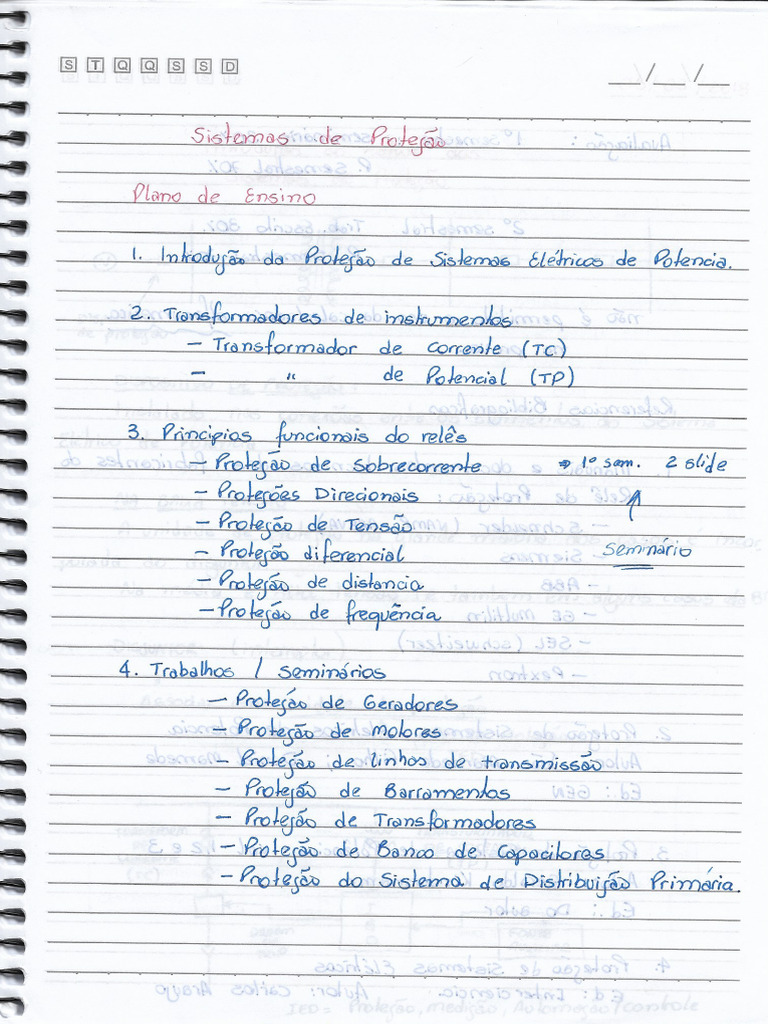 S T Q Q S S D
__/__/__
Sistemas de Proteção
Plano de Ensino
1. Introdução da Proteção de Sistemas Elétricos de Potencia.
2. Transformadores de instrumentos
- Transformador de corrente (TC)
- " de Potencial (TP)
3. Principios funcionais do relês
- Proteção de sobrecorrente ⇒ 1º sem. 2 slide
- Proteções Direcionais
- Proteção de Tensão
- Proteção diferencial seminário
- Proteção de distancia
- Proteção de frequência
4. Trabalhos / seminários
- Proteção de Geradores
- Proteção de motores
- Proteção de linhas de transmissão
- Proteção de Barramentos
- Proteção de Transformadores
- Proteção de Banco de Capacitores
- Proteção do Sistema de Distribuição Primária.